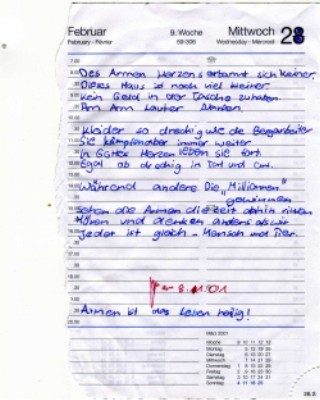 Februar 9. Woche Mittwoch 28
February · Février 59-306 Wednesday · Mercredi
Des Armen Herzens erbarmt sich keiner.
Dieses Haus ist noch viel kleiner.
Kein Geld in der Tasche zuhaben
Am Arm lauter Narben.
Kleider so dreckig wie die Bergarbeiter
Sie kämpfen aber immer weiter
In Gottes Herzen leben sie fort
Egal ob dreckig in Tat und Ort.
Während andere Die "Millionen"
gewinnen
sehen die Armen die Zeit dahin rinnen
Hören und denken anders als wir
Jeder ist gleich - Mensch und Tier.
8.11.01
Armen ist das Leben heilig!
März 2001
Woche 9 10 11 12 13
Montag 5 12 19 26
Dienstag 6 13 20 27
Mittwoch 7 14 21 28
Donnerstag 1 8 15 22 29
Freitag 2 9 16 23 30
Samstag 3 10 17 24 31
Sonntag 4 11 18 25